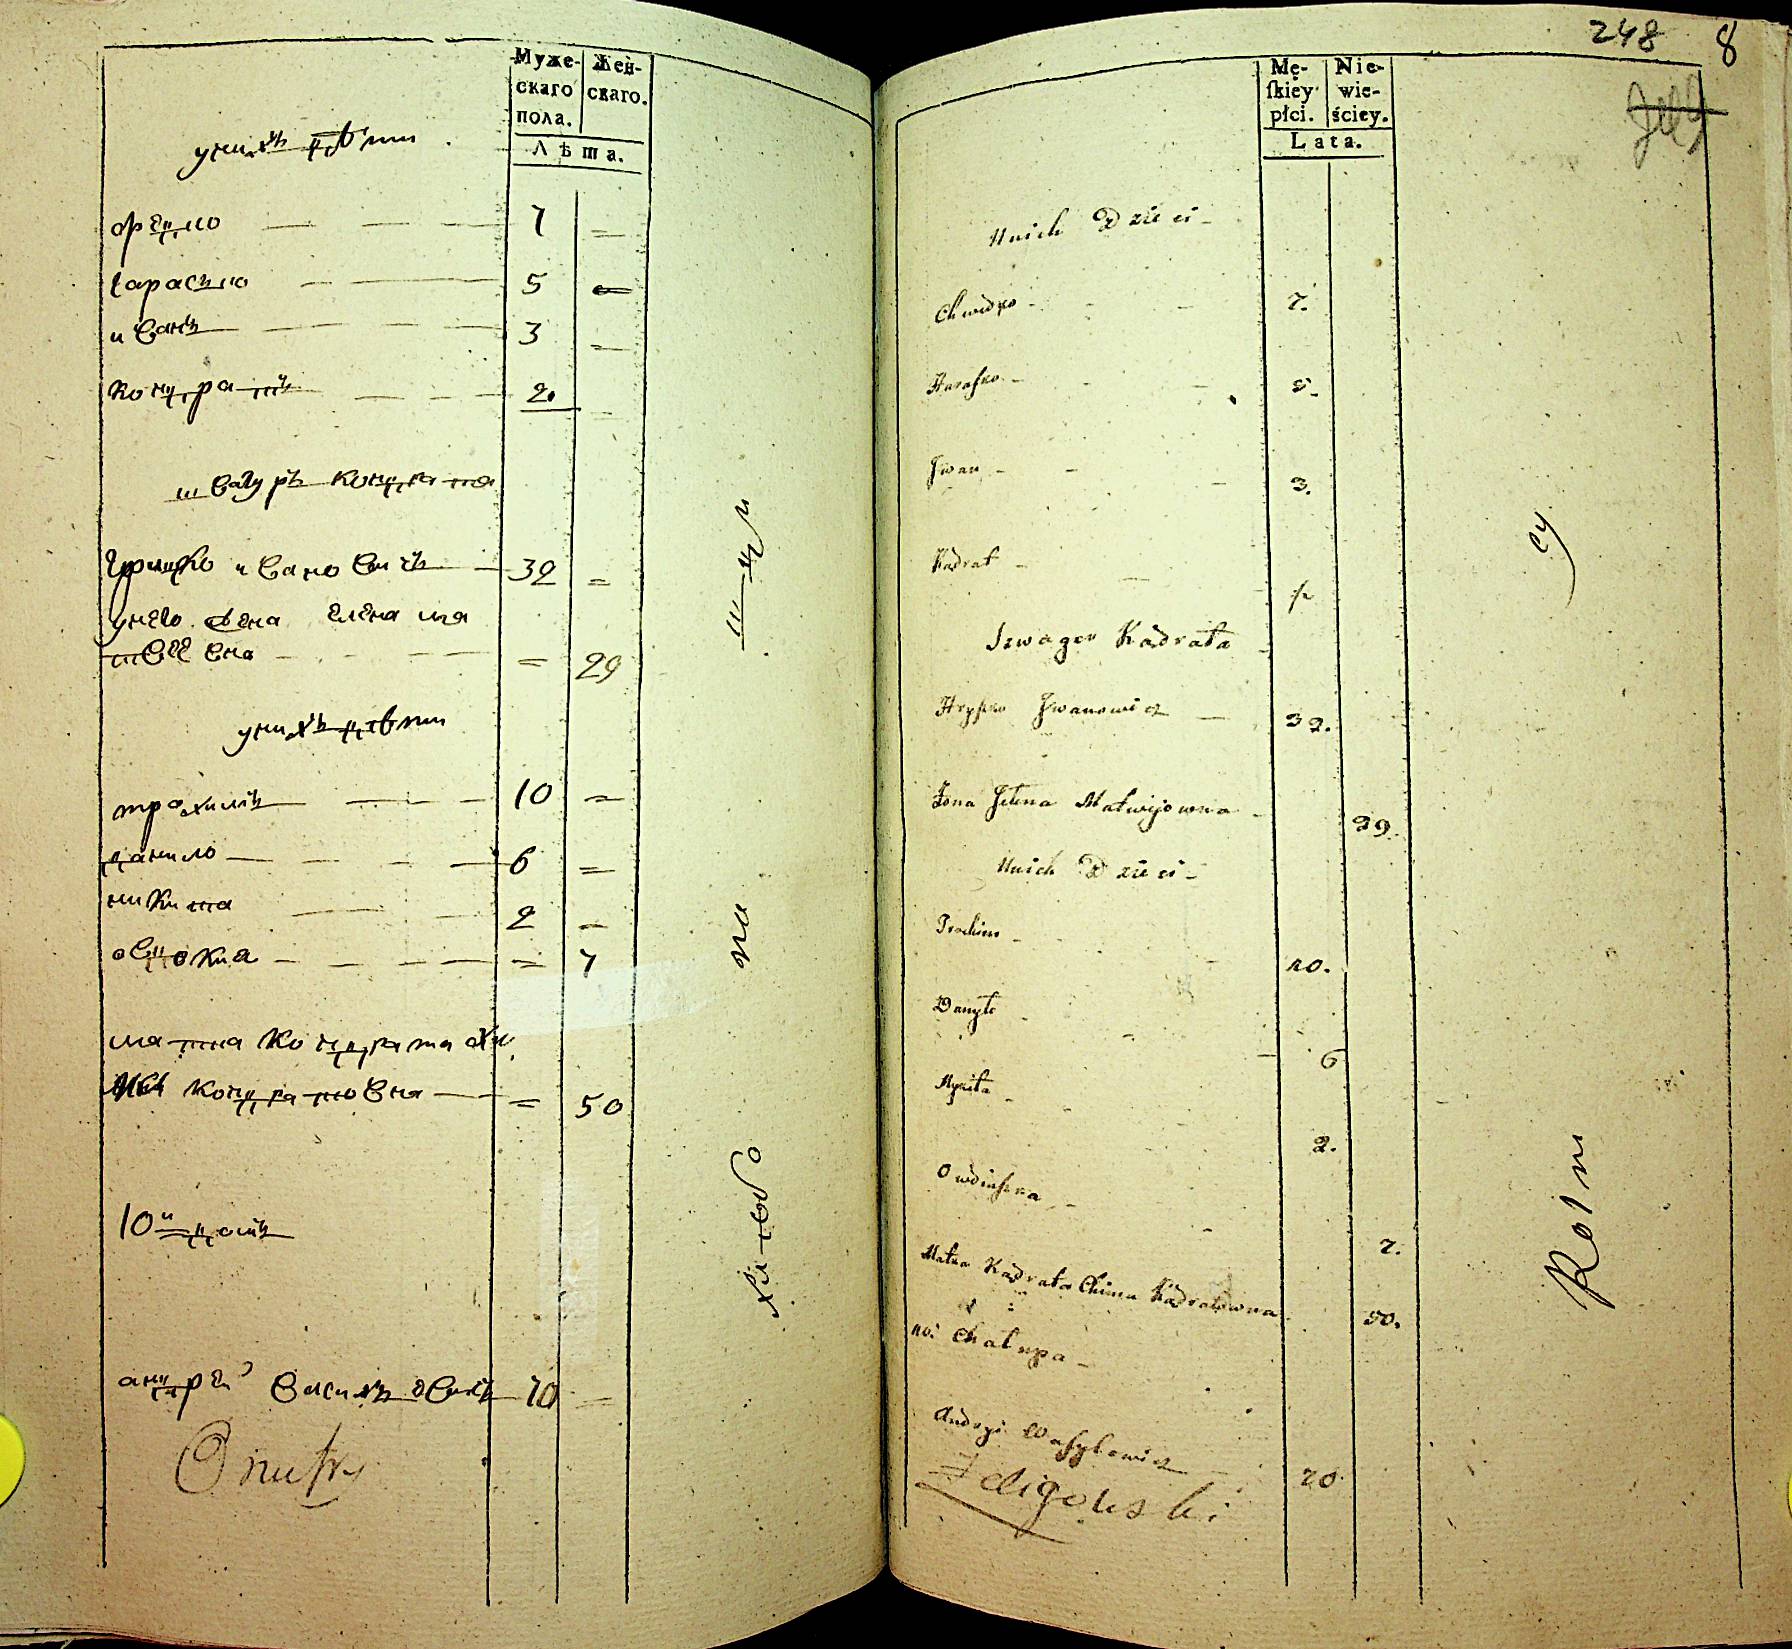 Муже-
скаго
пола.
Жен-
скаго.
Лѣта.
у нихъ дѣти
федко 7 =
гараско 5 =
иванъ 3 =
кондратъ 2. =
швагуръ кондрата
гришко ивановичъ 32 =
у него жена елена ма
твеевна = 29
у нихъ дѣти
трохимъ 10 =
данило 6 =
никита 2 =
овдокиа = 7
матка кондрата хи
кондратовна = 50
10й домъ
андрей василевичъ 70 =
248 8
Mę-
ſkiey
płci.
Nie-
wie-
ściey.
Lata.
Unich Dzieci
Chwedko 7.
Haraſko 5.
Jwan 3.
Kądrat
Szwager Kądrata
Hryſzko Jwanowicz 32.
Żona Jelena Matwijowna 29.
Unich Dzieci
Trochim 10.
Danyło 6
Mykita 2.
Owdiuſzka 7.
Matka Kądrata Chima Kądratowna 50.
10: Chałupa
Andrzy Waſylowicz 70
Żeligowski